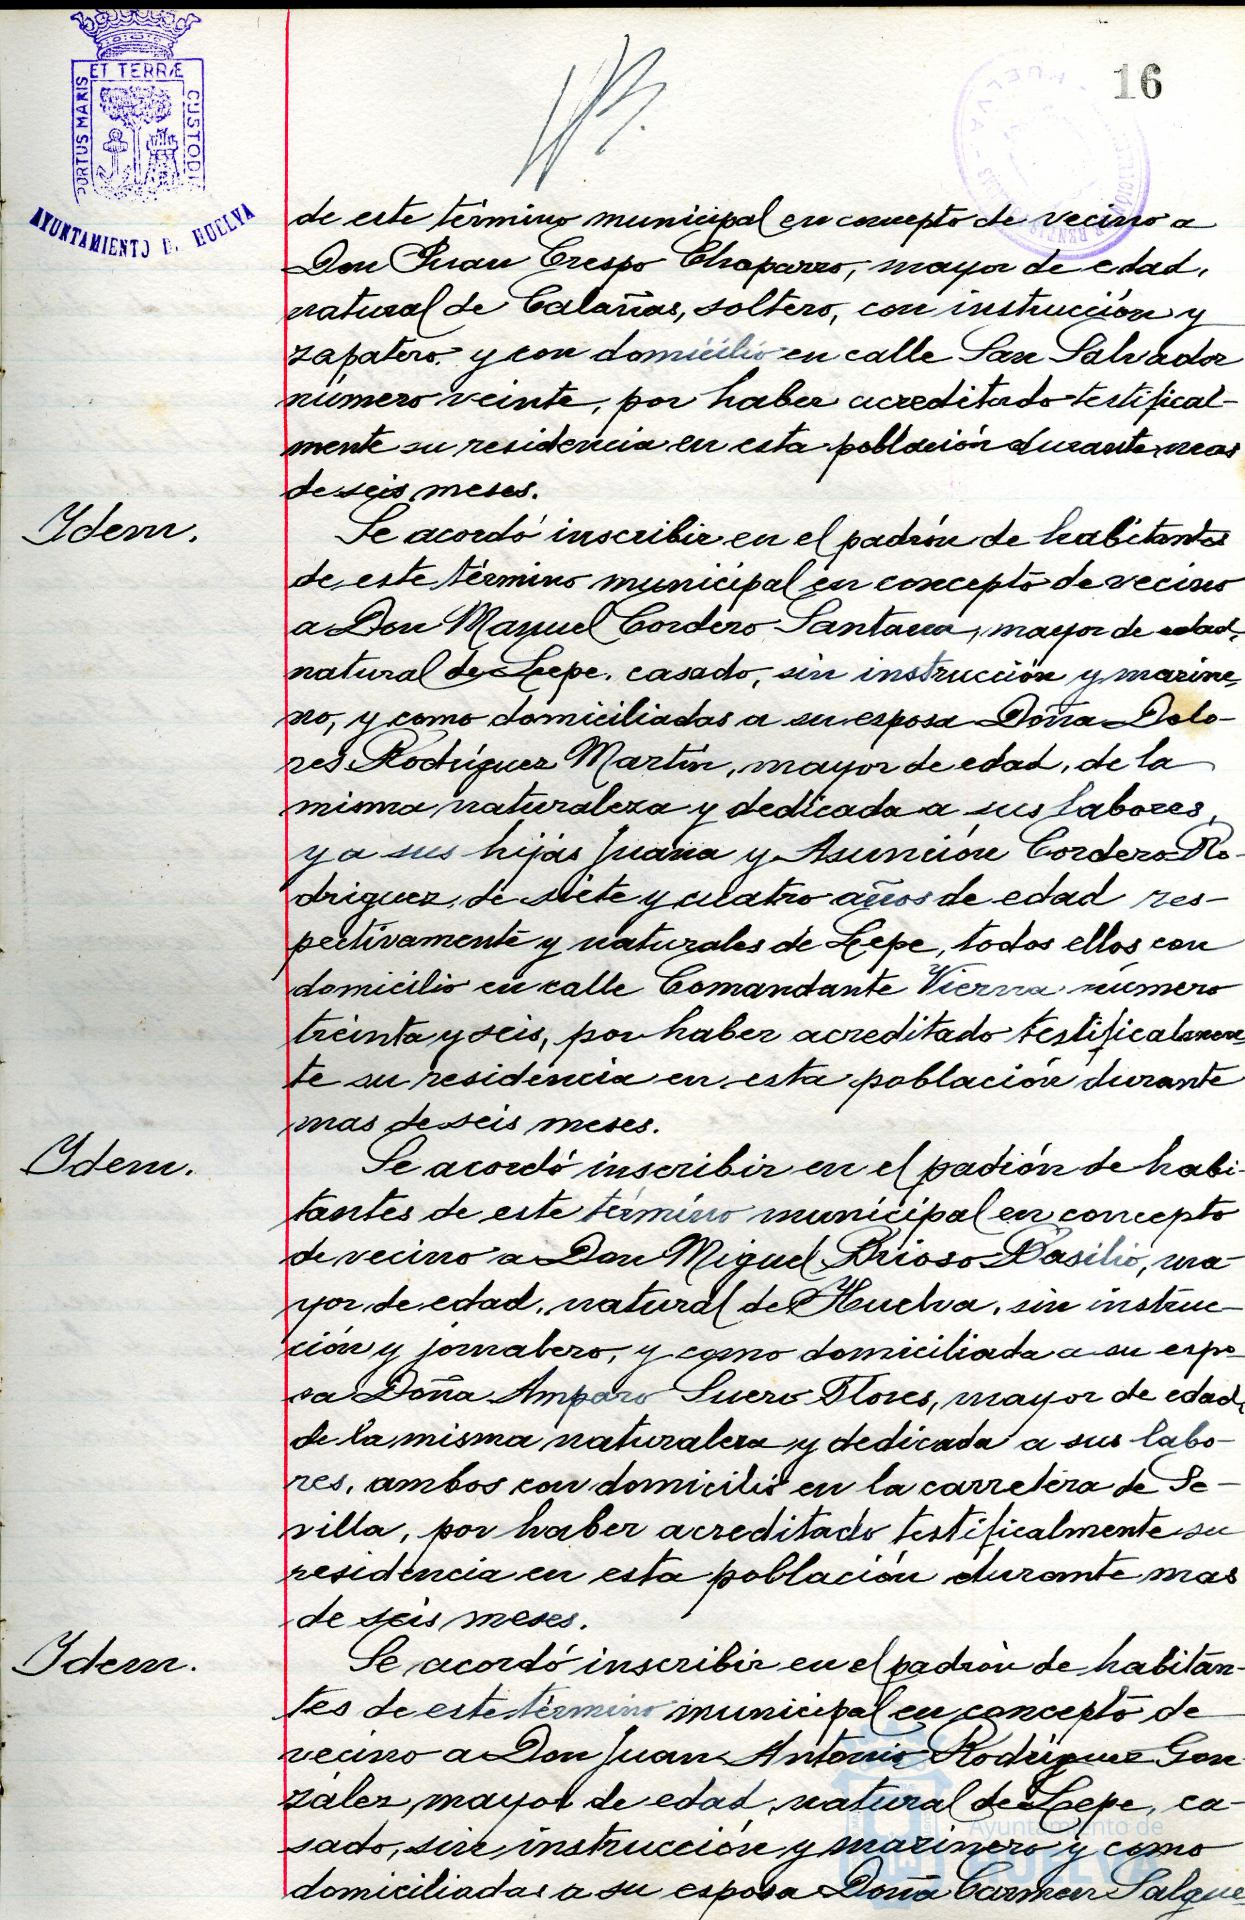 ET TERRÆ
PORTUS MARIS
CUSTODI
AYUNTAMIENTO D. HUELVA
16
de este término municipal en concepto de vecino a
Don Juan Crespo Chaparro, mayor de edad,
natural de Calañas, soltero, con instrucción y
zapatero y con domicilio en calle San Salvador
número veinte, por haber acreditado testifical-
mente su residencia en esta población durante mas
de seis meses.
Ydem.
Se acordó inscribir en el padrón de habitantes
de este término municipal en concepto de vecino
a Don Manuel Cordero Santana, mayor de edad,
natural de Lepe, casado, sin instrucción y marine-
ro, y como domiciliadas a su esposa Doña Dolo-
res Rodríguez Martín, mayor de edad, de la
misma naturaleza y dedicada a sus labores,
y a sus hijas Juana y Asunción Cordero Ro-
driguez, de siete y cuatro años de edad res-
pectivamente y naturales de Lepe, todos ellos con
domicilio en calle Comandante Vierna número
treinta y seis, por haber acreditado testificalmen-
te su residencia en esta población durante
mas de seis meses.
Ydem.
Se acordó inscribir en el padrón de habi-
tantes de este término municipal en concepto
de vecino a Don Miguel Brioso Basilio, ma-
yor de edad, natural de Huelva, sin instruc-
ción y jornalero, y como domiciliada a su espo-
sa Doña Amparo Suero Flores, mayor de edad,
de la misma naturaleza y dedicada a sus labo-
res, ambos con domicilio en la carretera de Se-
villa, por haber acreditado testificalmente su
residencia en esta población durante mas
de seis meses.
Ydem.
Se acordó inscribir en el padrón de habitan-
tes de este término municipal en concepto de
vecino a Don Juan Antonio Rodríguez Gon-
zález, mayor de edad, natural de Lepe, ca-
sado, sin instrucción y marinero y como
domiciliadas a su esposa Doña Carmen Salgue-
Ayuntamiento de
HUELVA